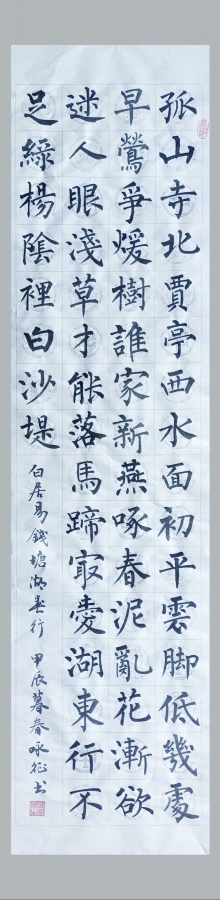 孤山寺北賈亭西水面初平雲脚低幾處
早鶯爭煖樹誰家新燕啄春泥亂花漸欲
迷人眼淺草才能落馬蹄㝡愛湖東行不
足綠楊陰裡白沙堤
白居易錢塘湖春行 甲辰暮春咏征书